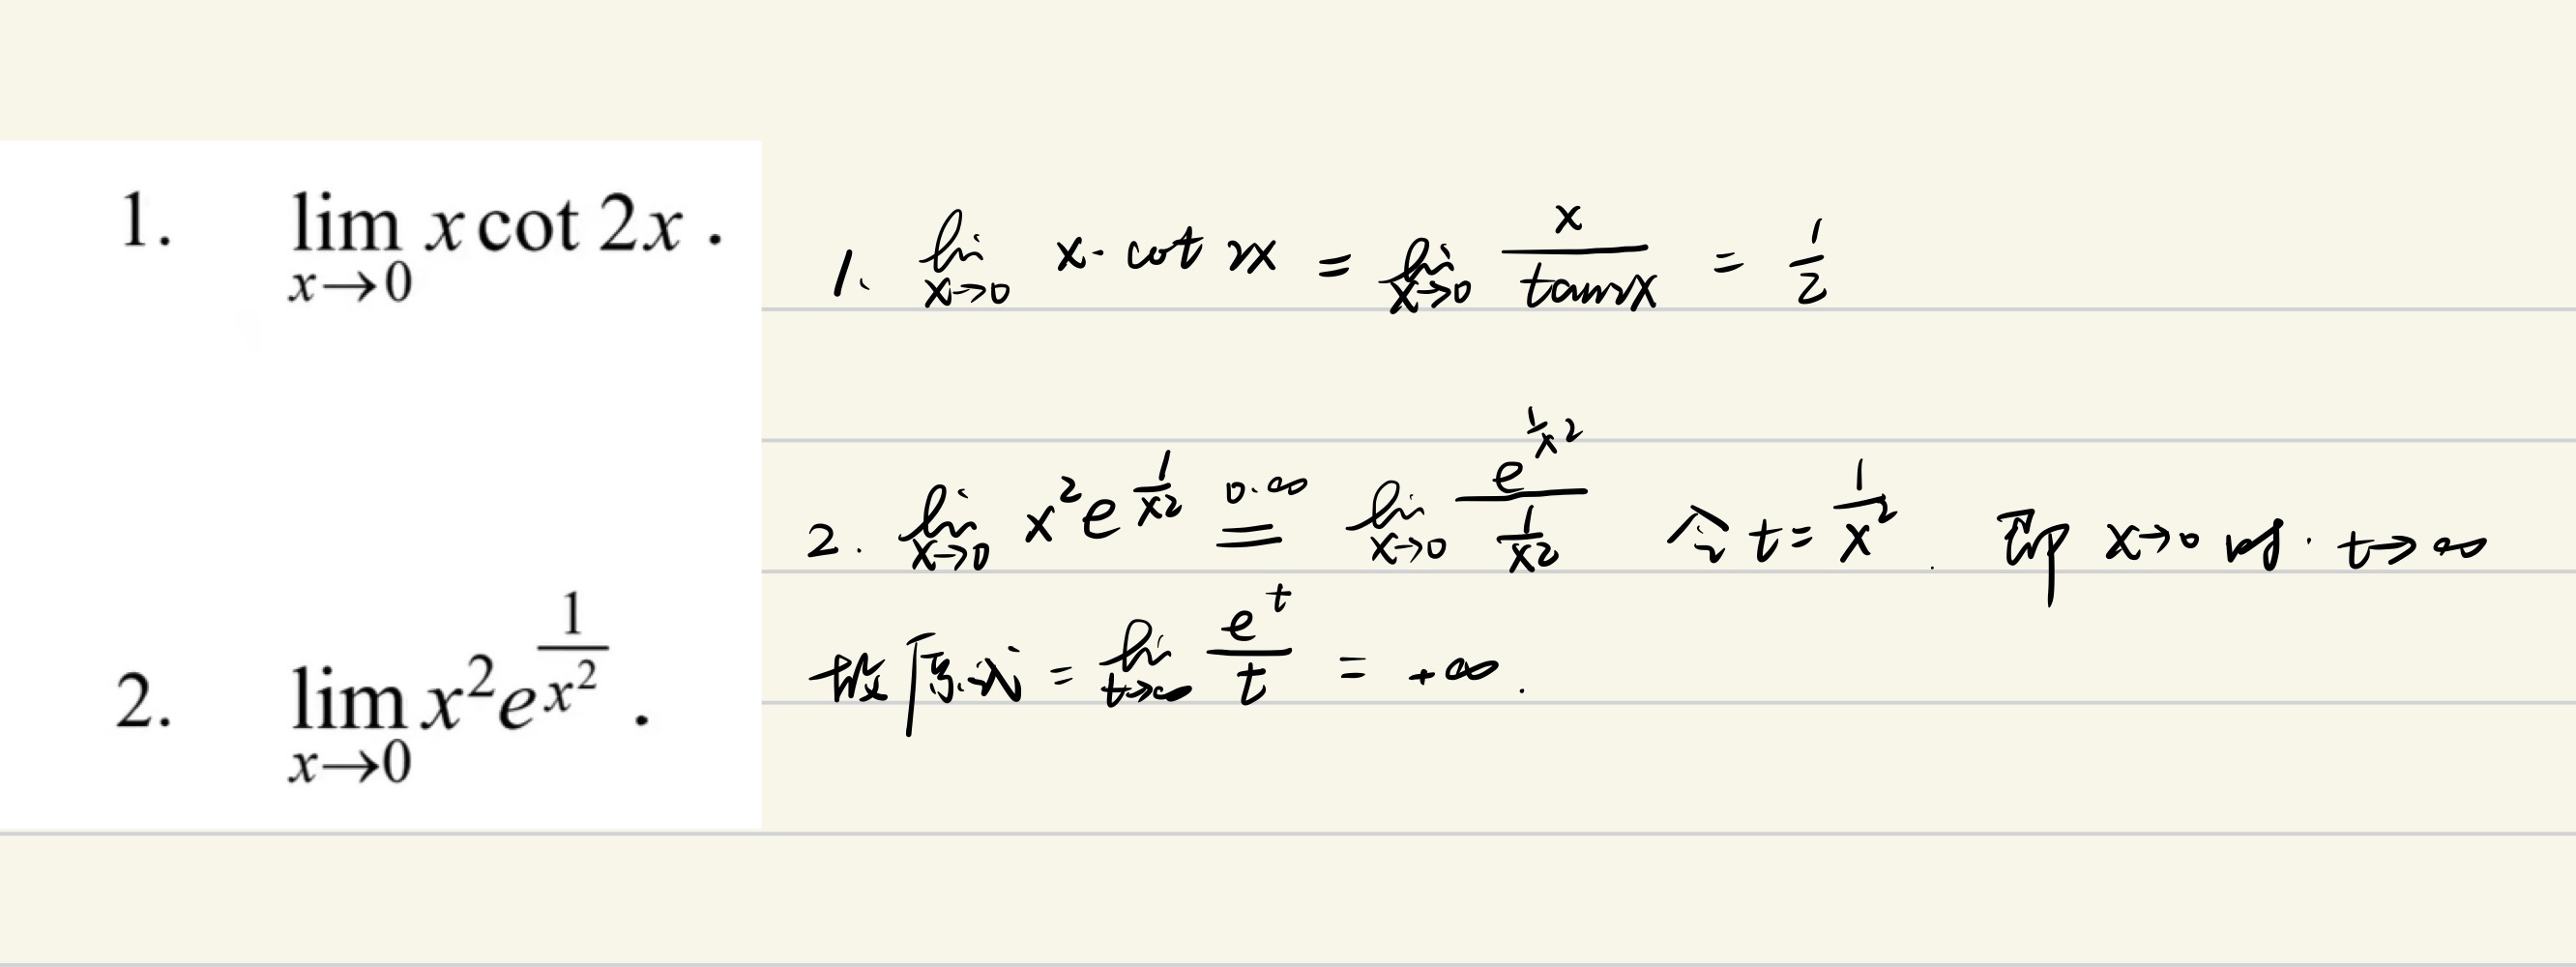 1. lim x→0 x cot 2x .
1. lim x→0 x·cot 2x = lim x→0 x/tan2x = 1/2
2. lim x→0 x²e^(1/x²) .
2. lim x→0 x²e^(1/x²) =(0·∞) lim x→0 e^(1/x²)/(1/x²) 令 t = 1/x² . 即 x→0 时. t→∞
故原式 = lim t→∞ e^t/t = +∞.